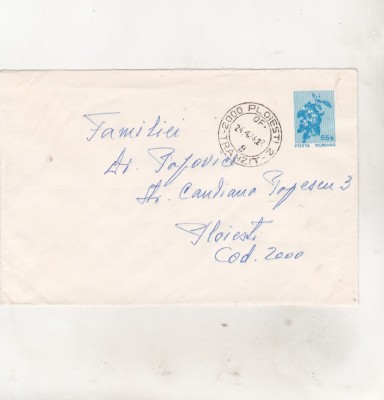 2000 PLOIESTI 2
OF.
TRANZIT
55 b
POSTA ROMANA
Familiei
Dr. Popovici
Str. Candiano Popescu 3
Ploiesti
Cod. 2000